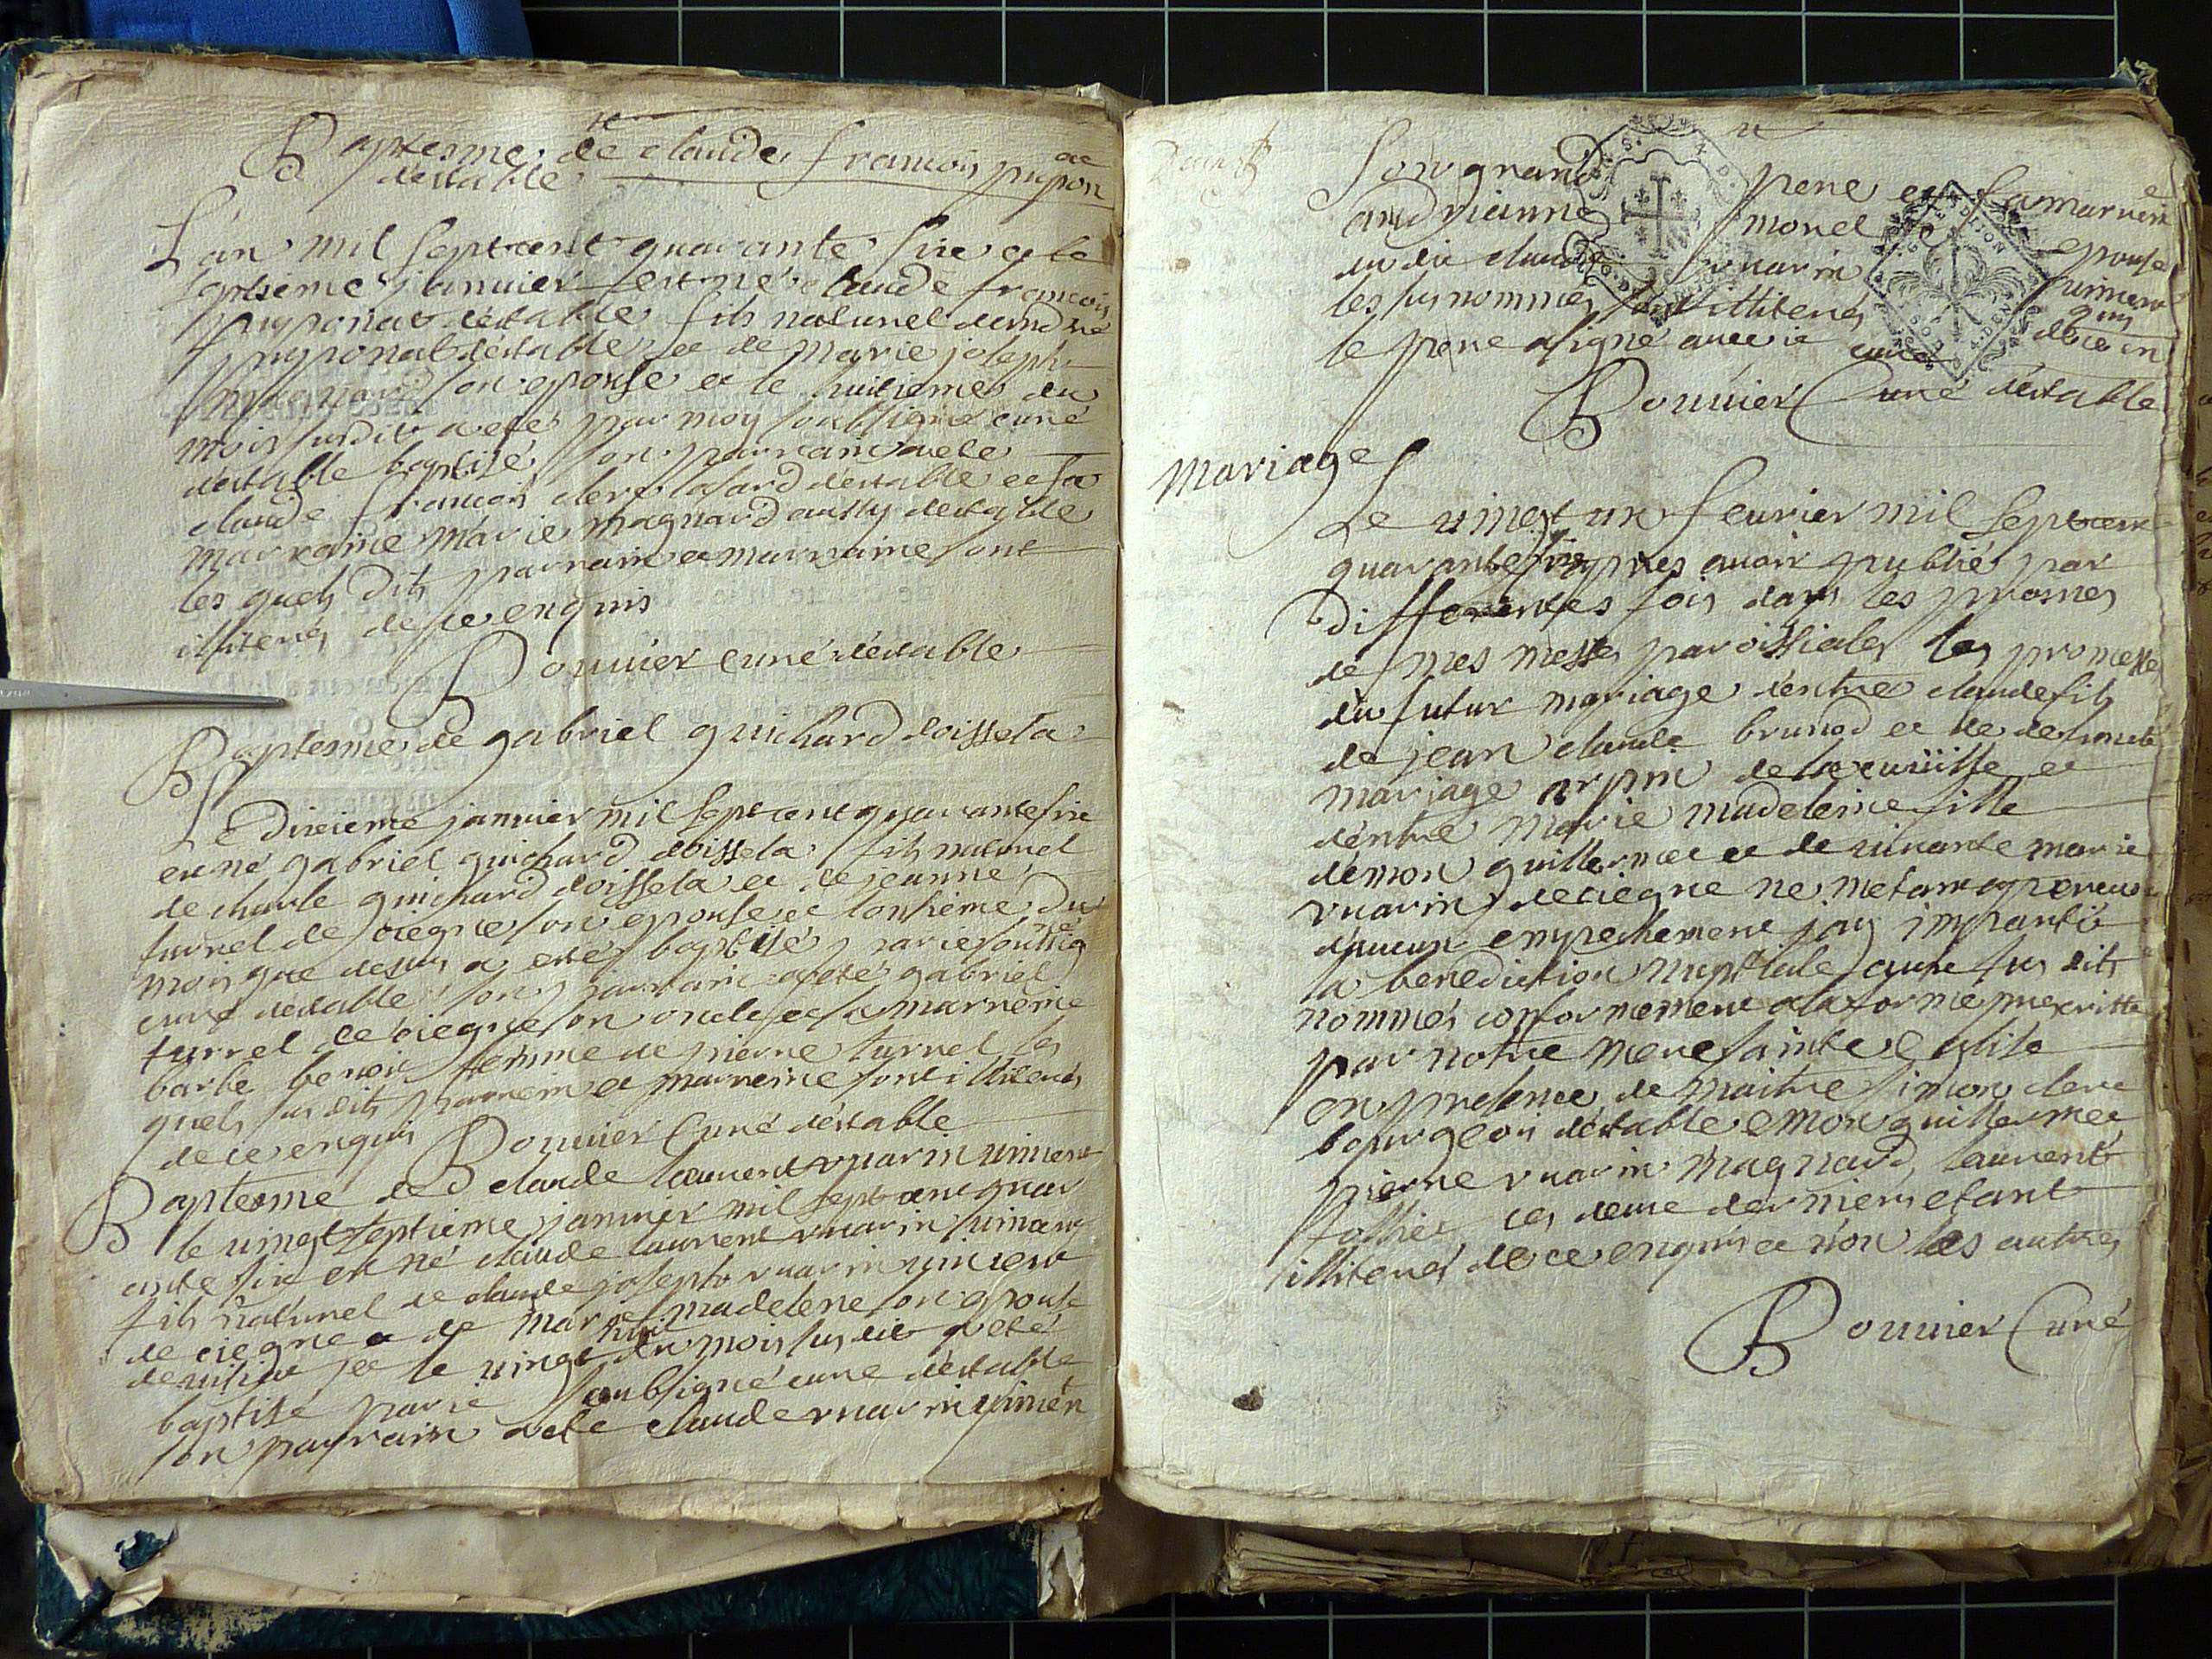 Baptesme de claude francois pupon
destable
L'an mil sept cent quarante sixe et le
septsieme janvier est né claude francois
puponat destable fils naturel dandré
puponat destable et de marie joseph
magnard son epouse et le huitieme du
mois susdit a eté par moy soubsigné curé
destable baptisé son parrain a ete
claude francois clerc lasard destable et sa
marraine marie magnard aussy destable
les quels dits parrain et marraine sont
illiterés de ce enquis
Bouvier curé destable
Baptesme de gabriel guichard doissela
Le dixieme janvier mil sept cent quarante sixe
est né gabriel guichard doissela fils naturel
de charle guichard doissela et de jeanne
turrel de ciegne son epouse et lonsieme du
mois que dessus a eté baptisé par ie soussigné
curé destable son parrain a eté gabriel
turrel de ciegne son oncle et sa marreine
barbe benoit femme de pierre turrel les
quels sus dits parrein et marreine sont illiterés
de ce enquis Bouvier Curé destable
Baptesme de claude laurent vuarin viment
le vingt septieme janvier mil sept cent quar
ante sixe est né claude laurent vuarin vimant
fils naturel de claude joseph vuarin vincent
de ciegne et de marie madelene son epouse
de et le vingt huit du mois sus dit a eté
baptise par ie soubsigné curé destable
son parrain a ete claude vuarin vimen
son grand pere et sa marreine
andrianne morel epouse
du dit claude vuarin viment
les sus nommés sont illiterés de ce en
quis
le pere a signé avec ie curé
Bouvier Curé destable
Mariage
Le vingt un fevrier mil sept cent
quarante six apres avoir publié par
differentes fois dans les prosnes
de mes messes paroissiales les promesses
du futur mariage dentre claude fils
de jean claude brunod et de defuncte
mariage arpin de et
dentre marie madeleine fille
demon guillermet et de vivante marie
vuarin de ciegne ne metant apercu
daucun empechement jay imparti
la benediction nuptiale aux sus dits
nommés conformement a la forme prescritte
par notre mere sainte eglise
en presence de maitre simon clerc
bourgeois destable emon guillermet
pierre vuarin magnard, laurent
ces deux derniers etant
illiterés de ce enquis et non les autres
Bouvier Curé